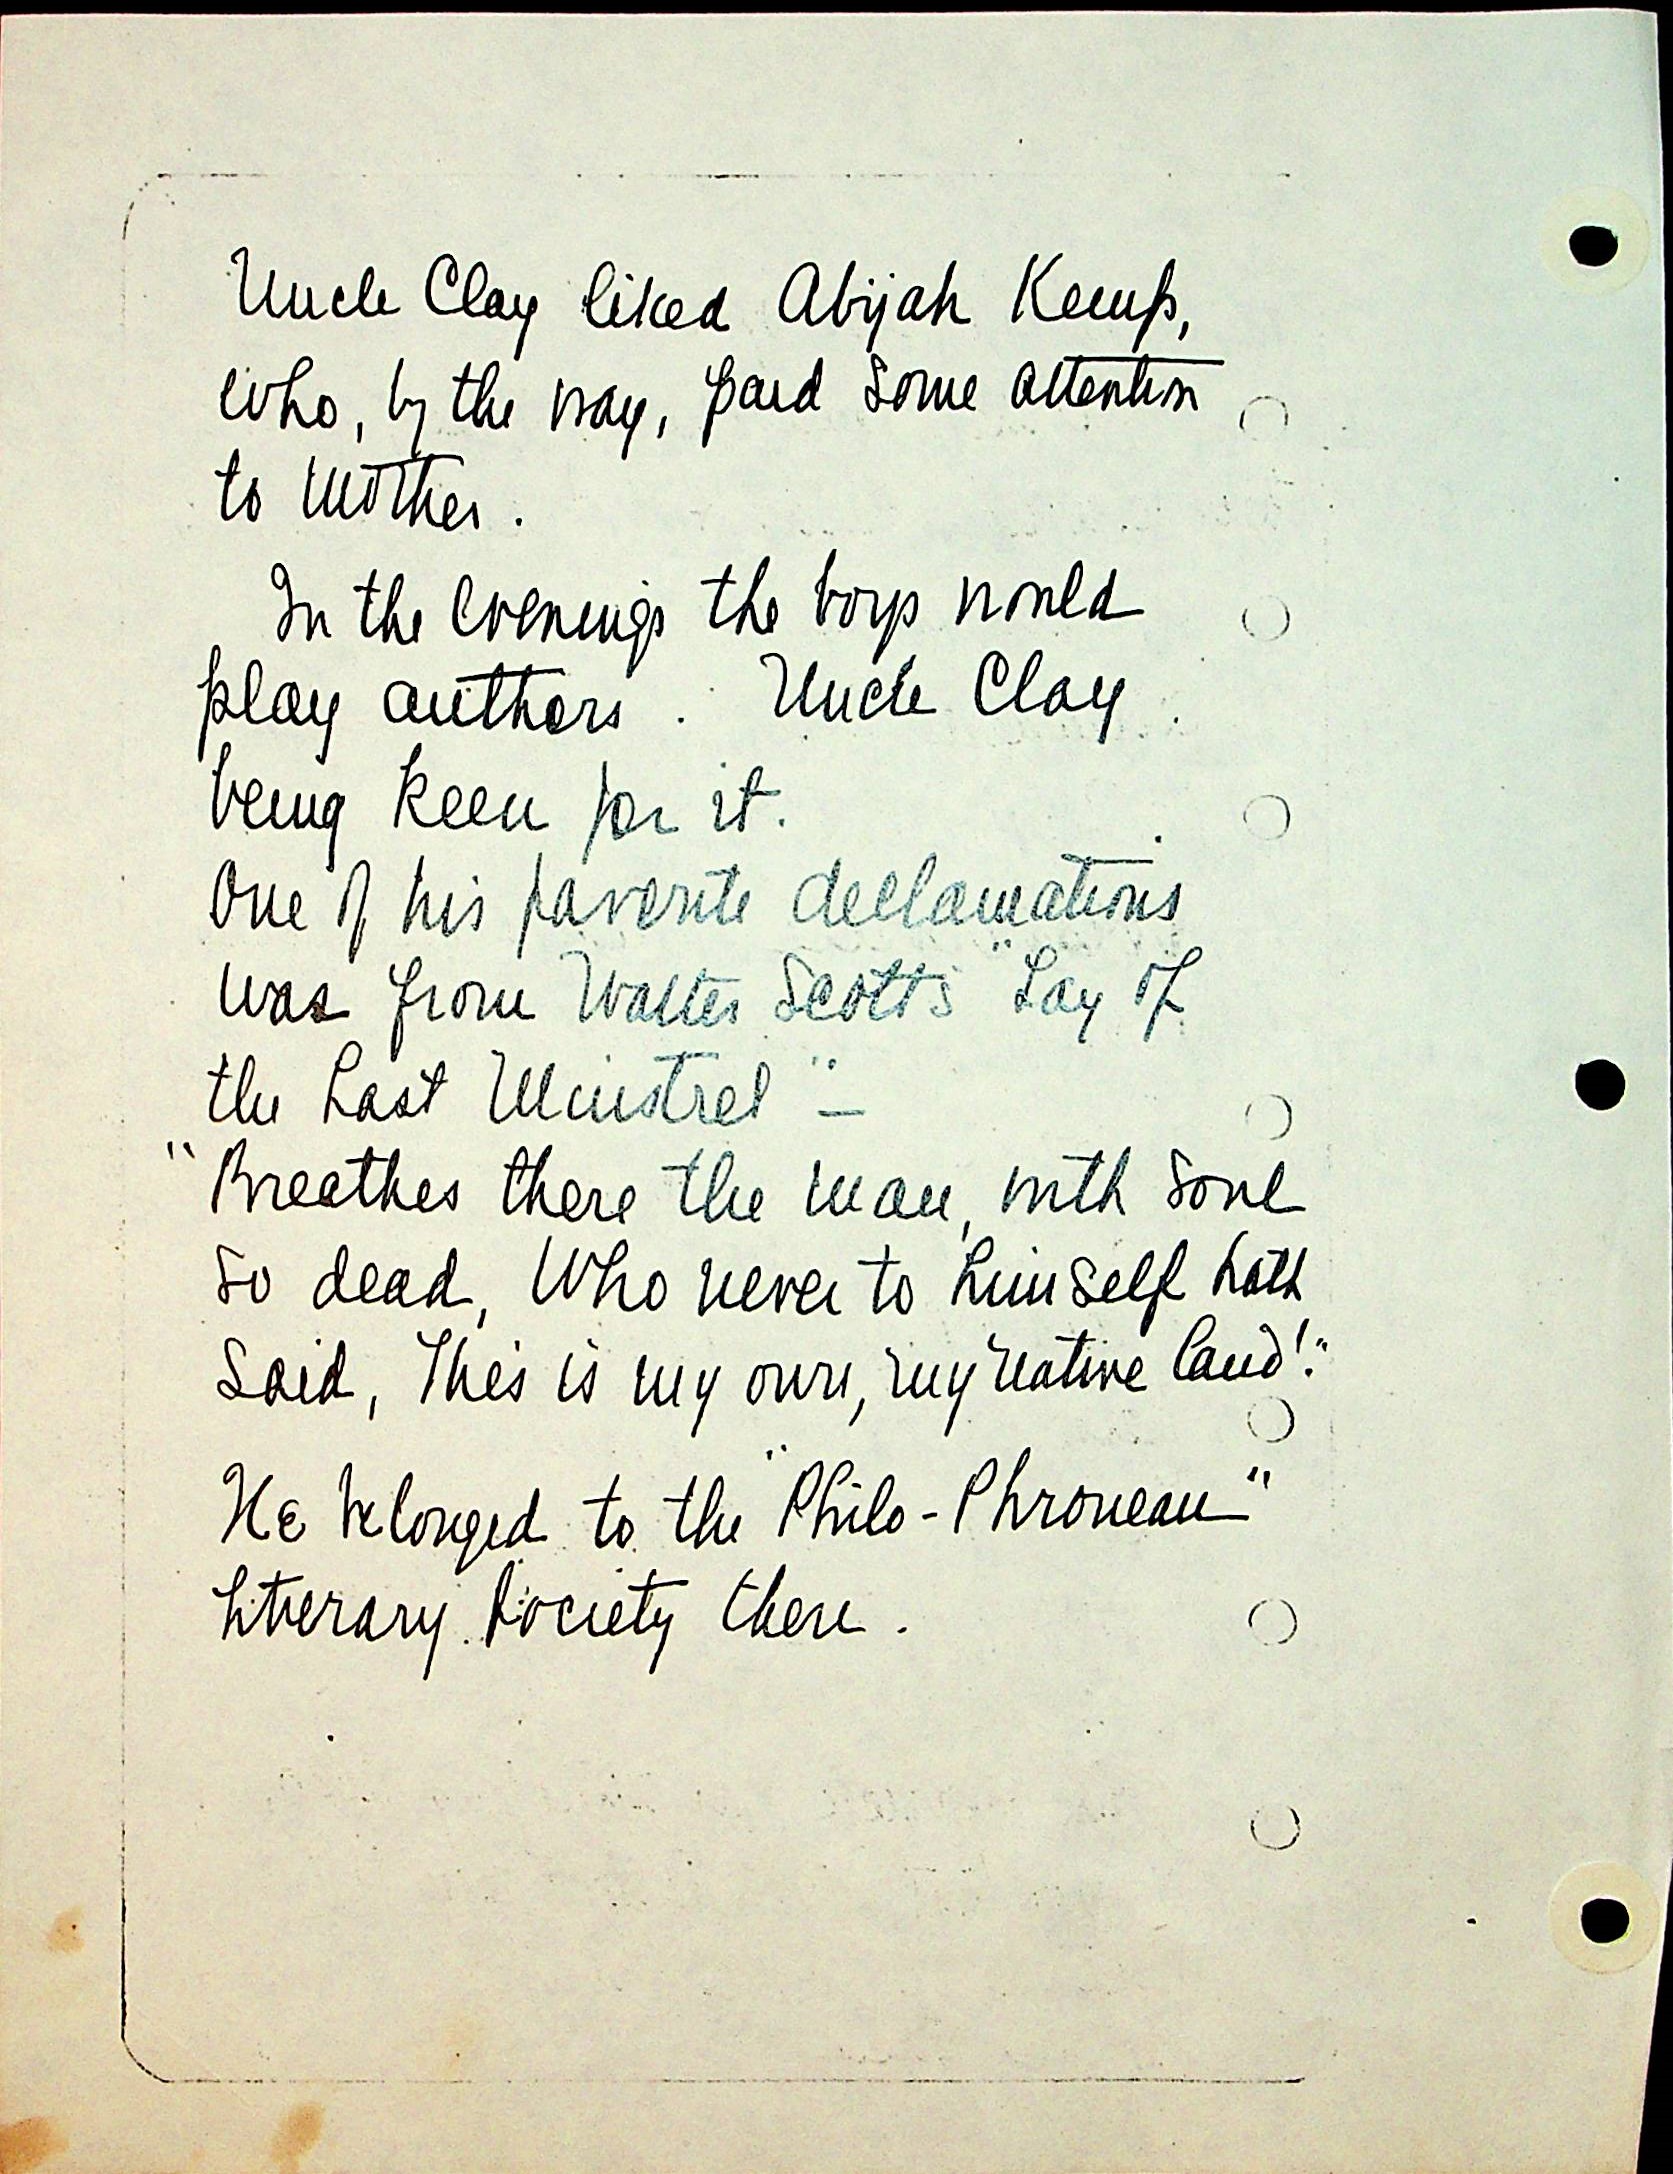 Uncle Clay liked Abijah Kemp,
who, by the way, paid some attention
to Mother.
In the evenings the boys would
play authors. Uncle Clay
being keen for it.
One of his favorite declamations
was from Walter Scott's "Lay of
the Last Minstrel" —
"Breathes there the man, with soul
so dead, Who never to himself hath
said, This is my own, my native land!"
He belonged to the "Philo-Phronean"
Literary Society there.